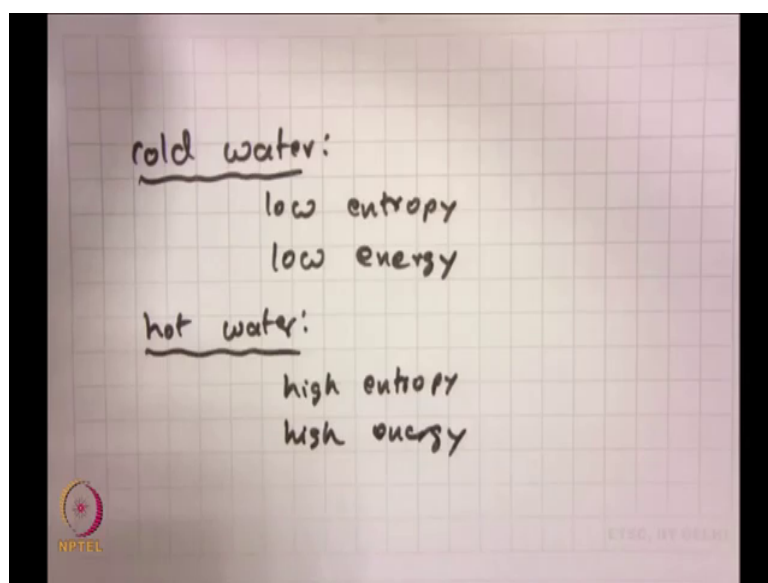 cold water:
low entropy
low energy
hot water:
high entropy
high energy
NPTEL
ETSC, IIT DELHI